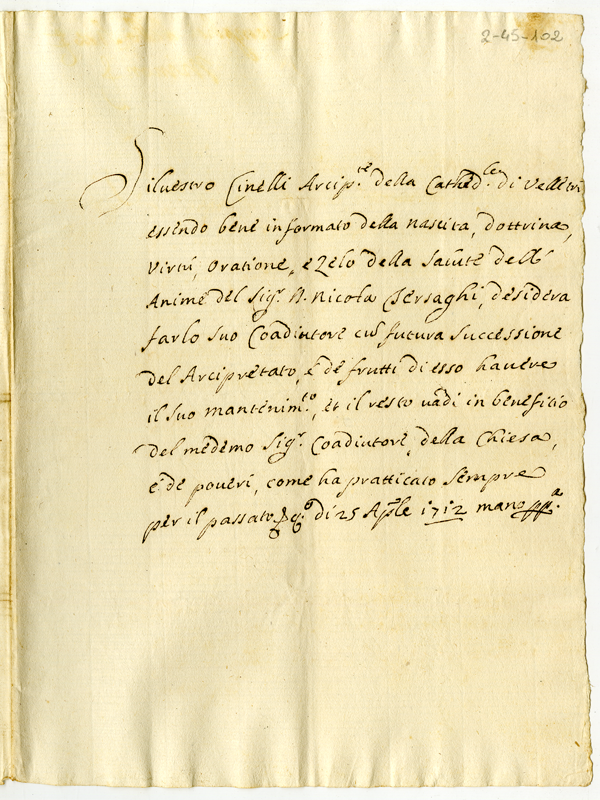 2-45-102
Siluestro Cinelli Arcip.te della Cathed.le di Velletri
essendo bene informato della nascita, dottrina,
Virtù, oratione, e Zelo della salute dell'
Anime del Sig.r D. Nicola Bersaghi, desidera
farlo suo Coadiutore cū futura successione
del Arcipretato, e de frutti di esso hauere
il suo mantenim.to, et il resto uadi in benefitio
del medemo Sig.r Coadiutore, della Chiesa,
e de poueri, come ha pratticato sempre
per il passato, q.o di 25 Aple 1712 mano pp.a